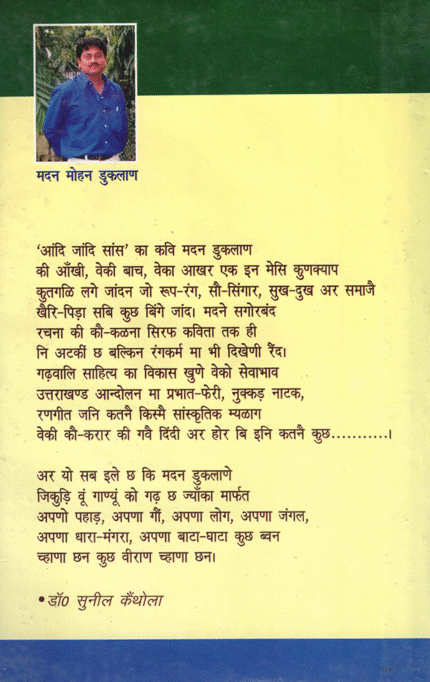 मदन मोहन डुकलाण
‘आंदि जांदि सांस’ का कवि मदन डुकलाण
की आँखी, वेकी बाच, वेका आखर एक इन मेसि कुणक्याप
कुतगळि लगे जांदन जो रूप-रंग, सौ-सिंगार, सुख-दुख अर समाजै
खैरि-पिड़ा सबि कुछ बिंगे जांद। मदने सगोरबंद
रचना की कौ-कळना सिरफ कविता तक ही
नि अटकीं छ बल्किन रंगकर्म मा भी दिखेणी रैंद।
गढ़वालि साहित्य का विकास खुणे वेको सेवाभाव
उत्तराखण्ड आन्दोलन मा प्रभात-फेरी, नुक्कड़ नाटक,
रणगीत जनि कतनै किस्मै सांस्कृतिक म्यळाग
वेकी कौ-करार की गवै दिंदी अर होर बि इनि कतनै कुछ...........।
अर यो सब इले छ कि मदन डुकलाणे
जिकुड़ि वूं गाण्यूं को गढ़ छ ज्याँका मार्फत
अपणो पहाड़, अपणा गौं, अपणा लोग, अपणा जंगल,
अपणा धारा-मंगरा, अपणा बाटा-घाटा कुछ ब्वन
च्हाणा छन कुछ वीराण च्हाणा छन।
•डॉ0 सुनील कैंथोला